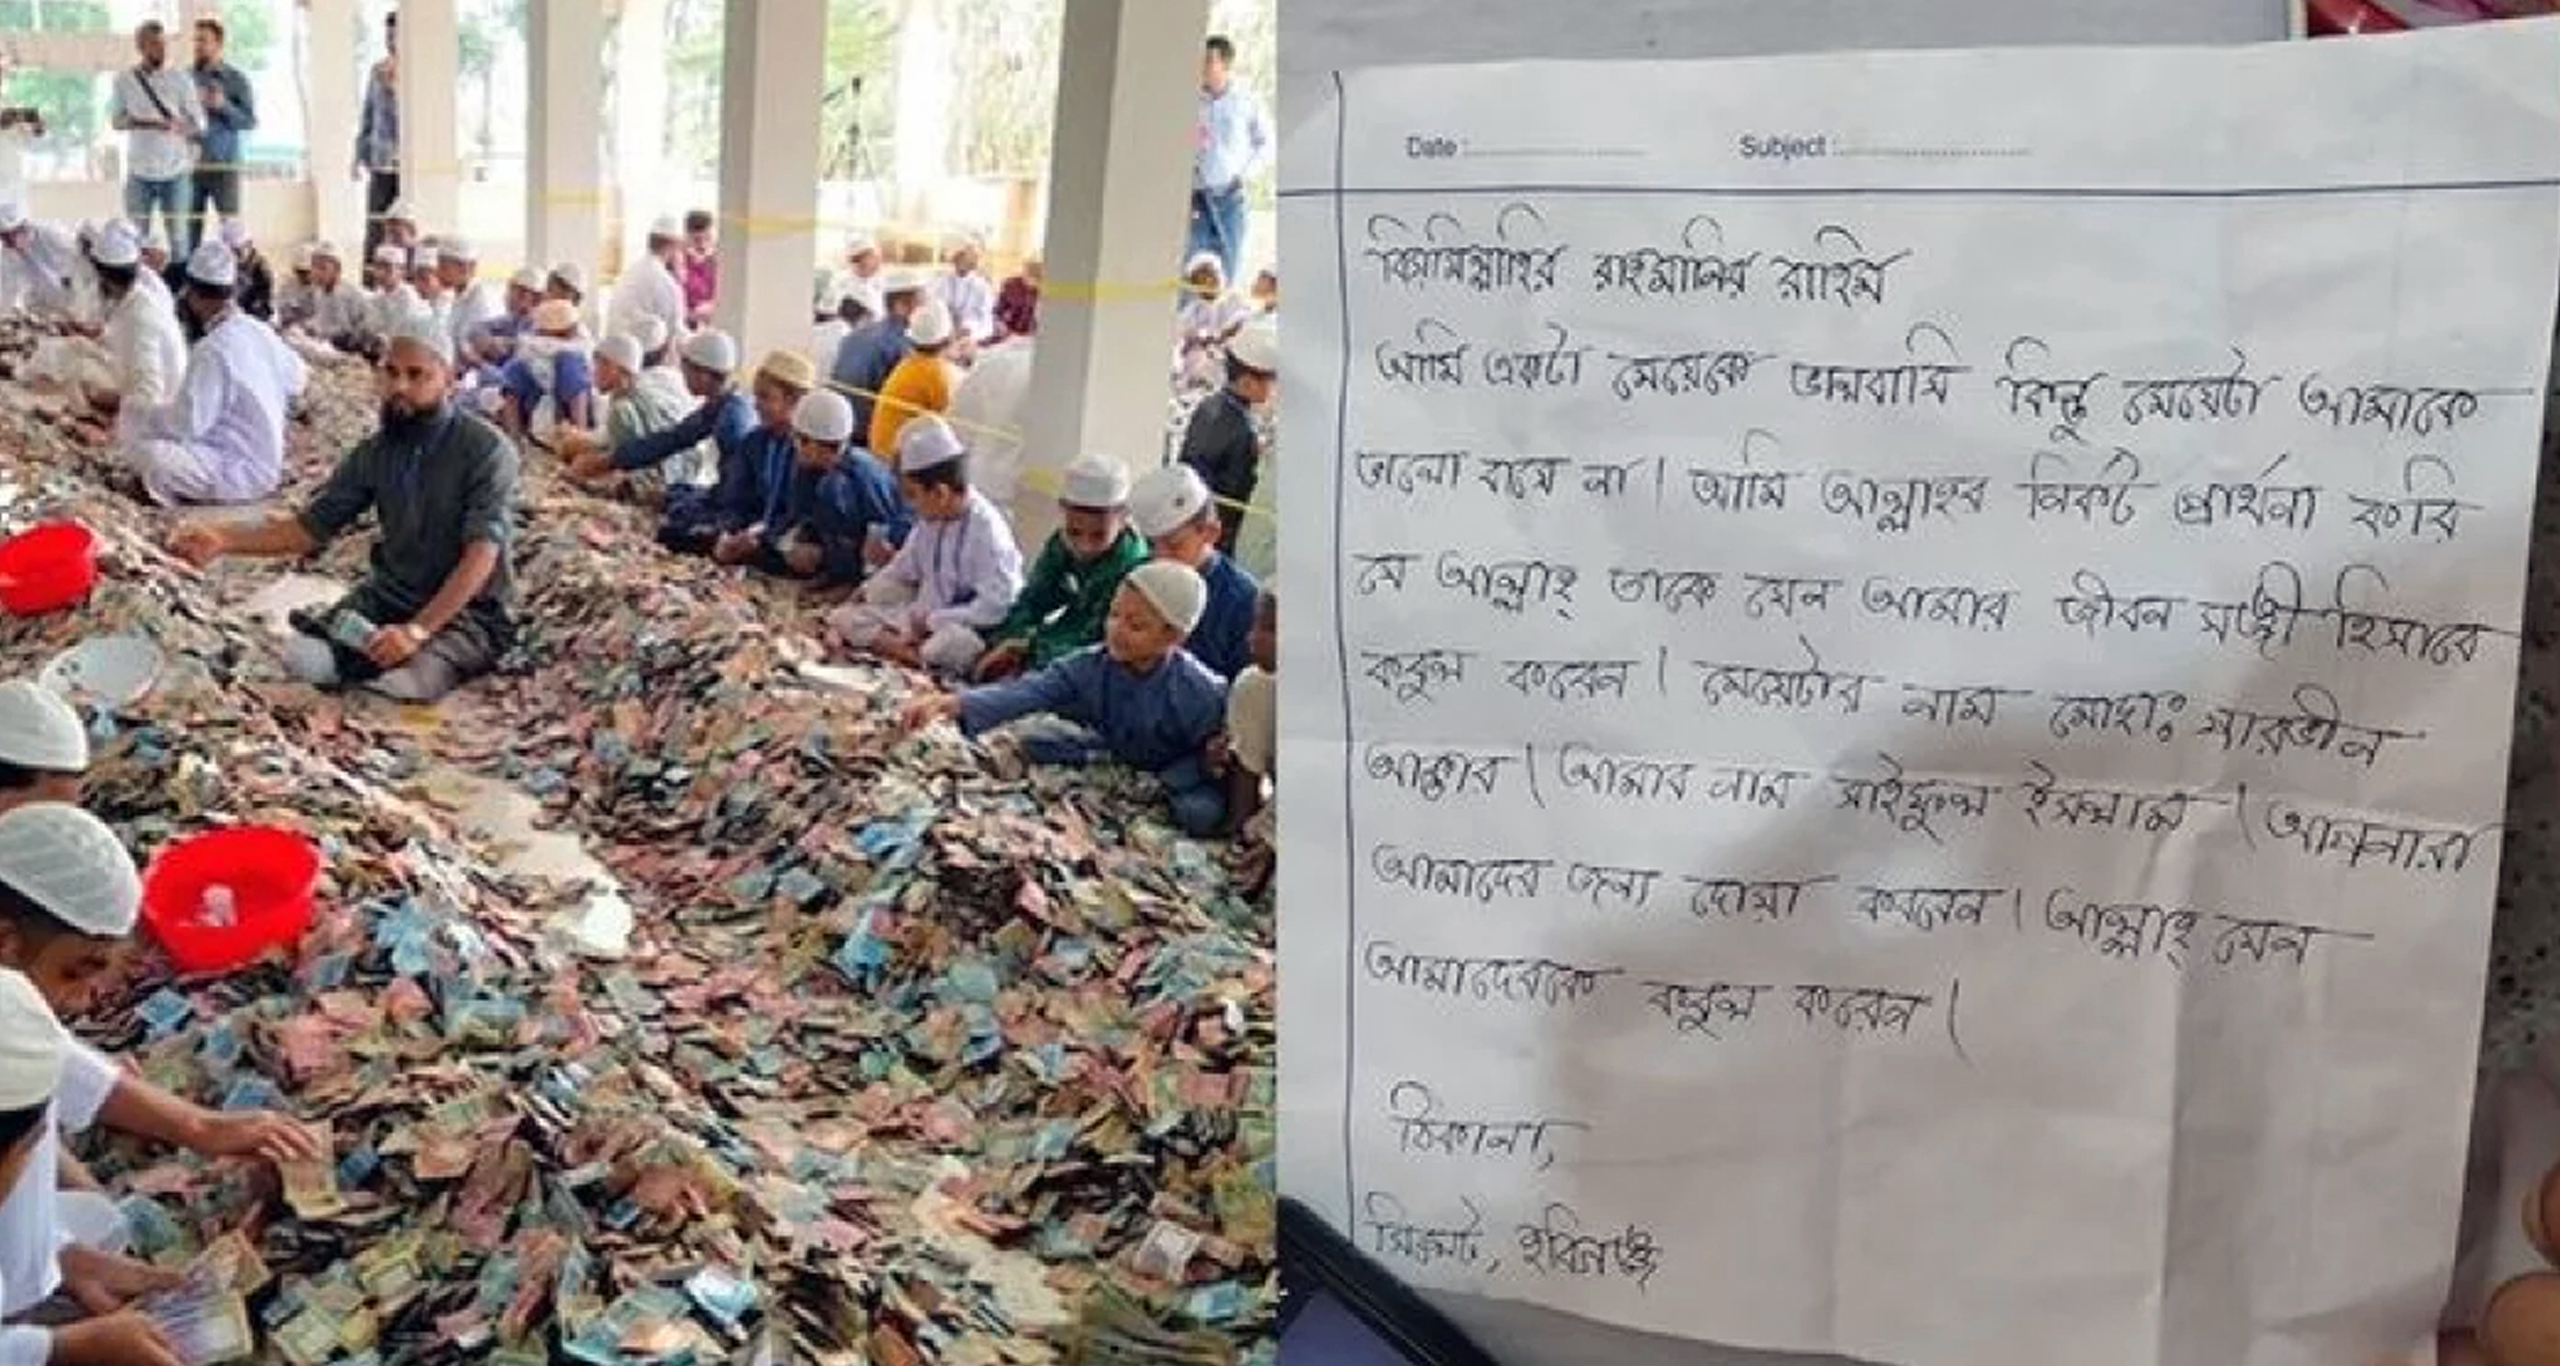 Date : Subject :
বিসমিল্লাহির রাহমানির রাহিম
আমি একটা মেয়েকে ভালবাসি কিন্তু মেয়েটা আমাকে
ভালো বাসে না। আমি আল্লাহর নিকট প্রার্থনা করি
যে আল্লাহ্ তাকে যেন আমার জীবন সঙ্গী হিসাবে
কবুল করেন। মেয়েটার নাম মোছাঃ শারভীন
আক্তার। আমার নাম সাইফুল ইসলাম। আপনারা
আমাদের জন্য দোয়া করবেন। আল্লাহ্ যেন
আমাদেরকে কবুল করেন।
ঠিকানা,
সিলেট, হবিগঞ্জ